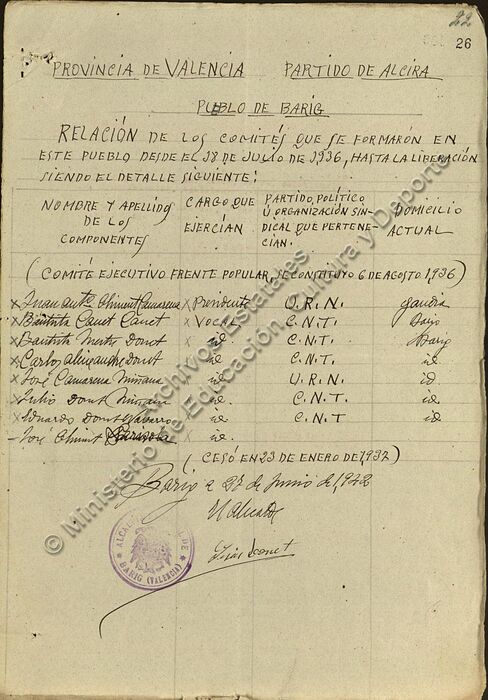 22
26
PROVINCIA DE VALENCIA PARTIDO DE ALCIRA
PUEBLO DE BARIG
RELACIÓN DE LOS COMITÉS QUE SE FORMARÓN EN
ESTE PUEBLO DESDE EL 18 DE JULIO DE 1936, HASTA LA LIBERACIÓN
SIENDO EL DETALLE SIGUIENTE:
NOMBRE Y APELLIDOS DE LOS COMPONENTES
CARGO QUE EJERCÍAN
PARTIDO, POLÍTICO U ORGANIZACIÓN SINDICAL QUE PERTENECIAN.
DOMICILIO ACTUAL
(COMITÉ EJECUTIVO FRENTE POPULAR, SE CONSTITUYO 6 DE AGOSTO 1,936)
x Juan Antº Climent Camarena x Presidente U.R.N. gandia
x Bautista Canet Canet x VOCAL C.N.T. Barig
x Bautista Donot x id. C.N.T. Barig
x Carlos Donot x id. C.N.T. id
x José Camarena Miñana x id. U.R.N. id
x Julio Dont x id. C.N.T. id
x Eduardo Dont x id C.N.T id
- José Climent x id.
(CESÓ EN 23 DE ENERO DE 1,937)
Barig a 27 de Junio de 1,942
El Alcalde
ALCALDE
BARIG (VALENCIA)
© Ministerio de Educación, Cultura y Deporte
Archivos Estatales